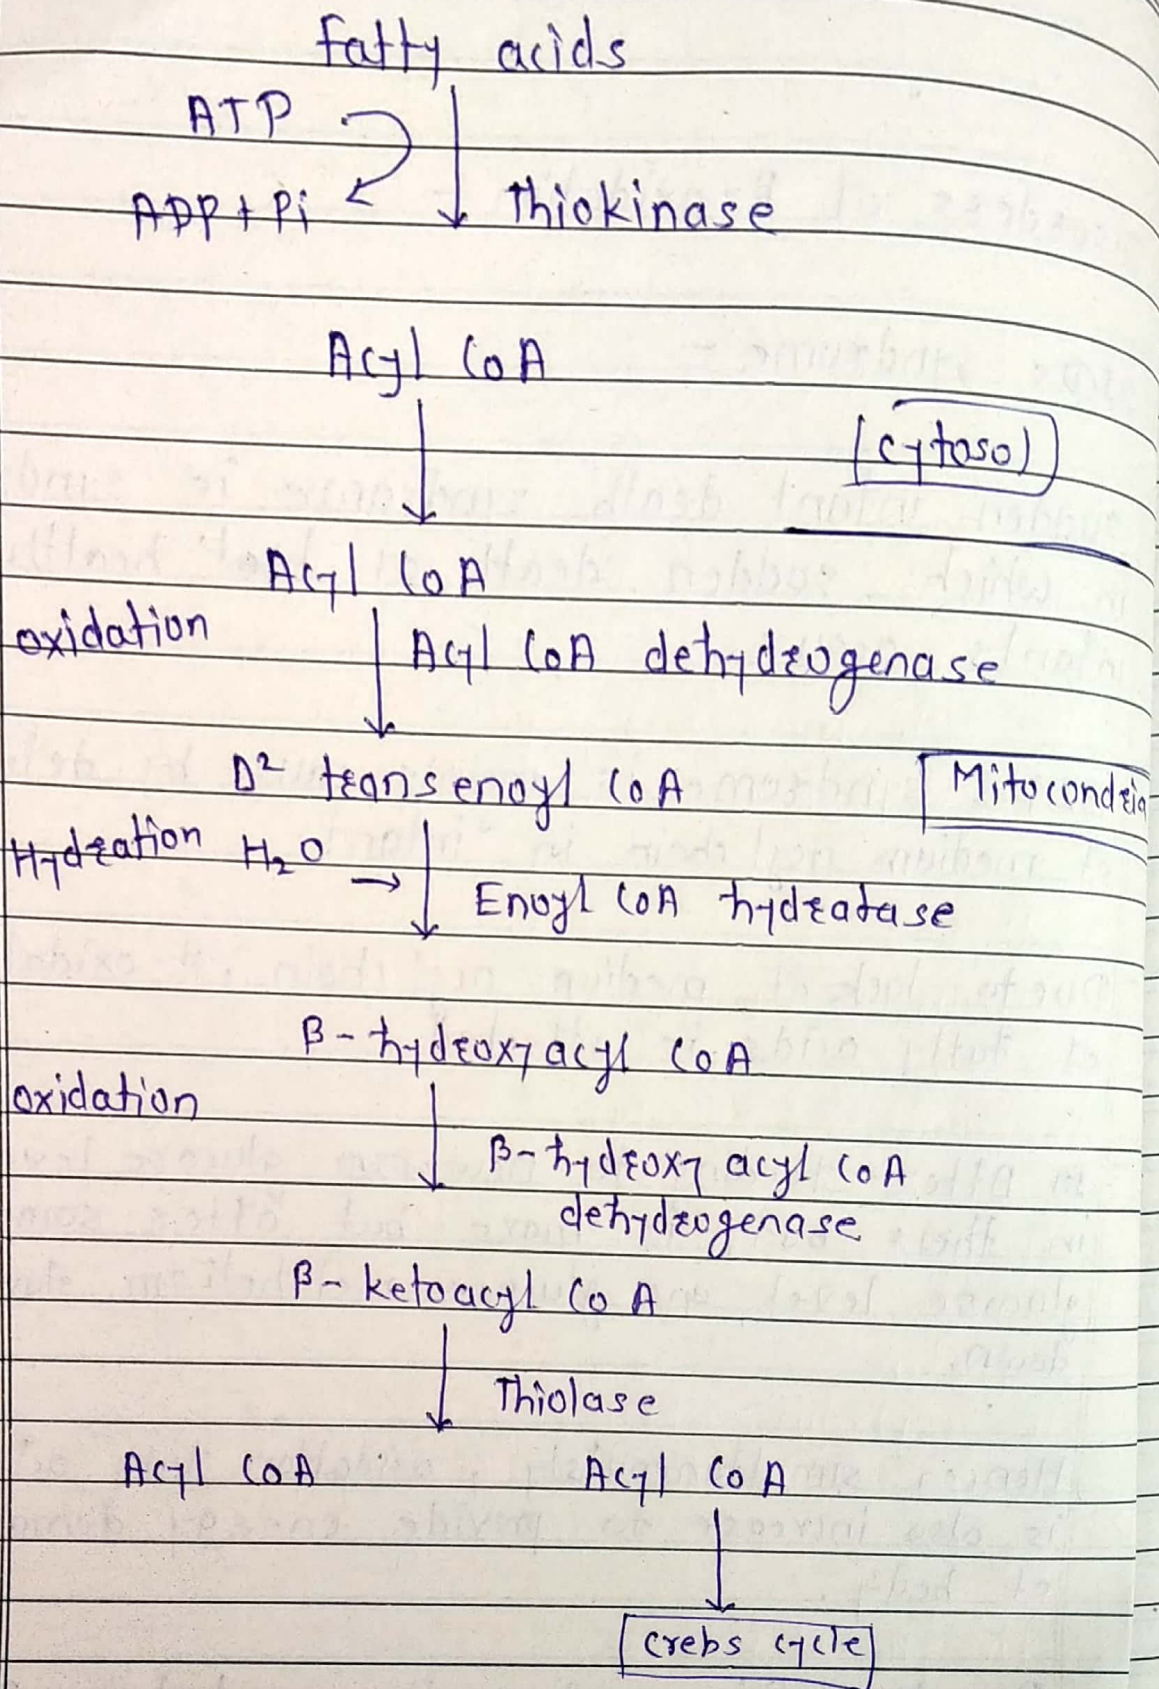 Fatty acids
ATP
ADP + Pi Thiokinase
Acyl CoA
Cytosol
Acyl CoA
oxidation Acyl CoA dehydrogenase
Δ² trans enoyl CoA Mitocondria
Hydration H₂O →
Enoyl CoA hydratase
β- hydroxy acyl CoA
oxidation
β- hydroxy acyl CoA
dehydrogenase
β- ketoacyl CoA
Thiolase
Acyl CoA Acyl CoA
Crebs cycle